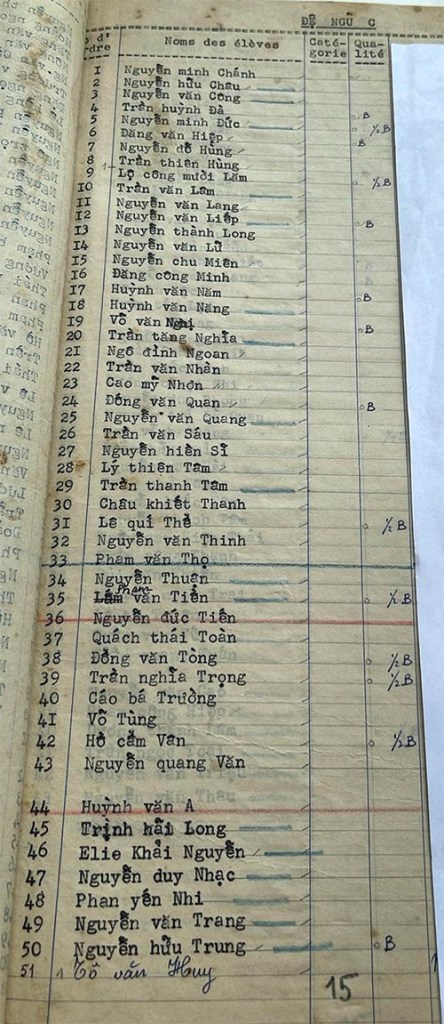 ĐỆ NGŨ C
d'ordre Noms des élèves Caté-gorie Qua-lité
1 Nguyễn minh Chánh
2 Nguyễn hữu Châu
3 Nguyễn văn Công
4 Trần huỳnh Đà
5 Nguyễn minh Đức B
6 Đặng văn Hiệp ½B
7 Nguyễn đỗ Hùng B
8 Trần thiên Hùng
9 Lọ công mười Lăm
10 Trần văn Lắm ½B
11 Nguyễn văn Lang
12 Nguyễn văn Liếp
13 Nguyễn thành Long B
14 Nguyễn văn Lữ
15 Nguyễn chu Miên
16 Đặng công Minh
17 Huỳnh văn Năm
18 Huỳnh văn Năng B
19 Võ văn Nghi
20 Trần tăng Nghĩa B
21 Ngô đình Ngoạn
22 Trần văn Nhàn
23 Cao mỹ Nhơn
24 Đồng văn Quan B
25 Nguyễn văn Quang
26 Trần văn Sáu
27 Nguyễn hiền Sĩ
28 Lý thiện Tâm
29 Trần thanh Tâm
30 Châu khiết Thanh
31 Lê quí Thể ½B
32 Nguyễn văn Thinh
33 Phạm văn Thọ
34 Nguyễn Thuận
35 Phạm văn Tiền ½B
36 Nguyễn đức Tiến
37 Quách thái Toàn
38 Đồng văn Tòng ½B
39 Trần nghĩa Trọng ½B
40 Cáo bá Trường
41 Võ Tùng
42 Hồ cẩm Vân ½B
43 Nguyễn quang Văn
44 Huỳnh văn A
45 Trịnh hải Long
46 Elie Khải Nguyễn
47 Nguyễn duy Nhạc
48 Phan yến Nhi
49 Nguyễn văn Trang
50 Nguyễn hữu Trung B
51 Tô văn Huy
15